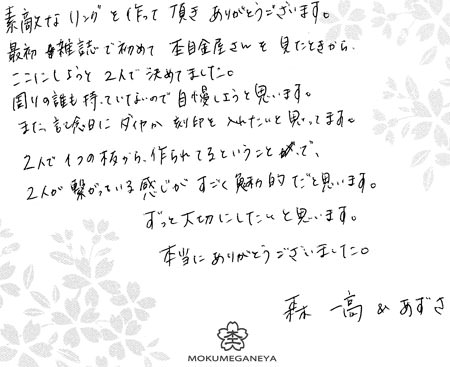 素敵なリングを作って頂きありがとうございます。
最初雑誌で初めて杢目金屋さんを見たときから、
ここにしようと2人で決めてました。
周りの誰も持っていないので自慢しようと思います。
また、記念日にダイヤか刻印を入れたいと思ってます。
2人で1つの板から、作られてるということで、
2人が繋がっている感じがすごく魅力的だと思います。
ずっと大切にしたいと思います。
本当にありがとうございました。
森 一高 & あずさ
MOKUMEGANEYA